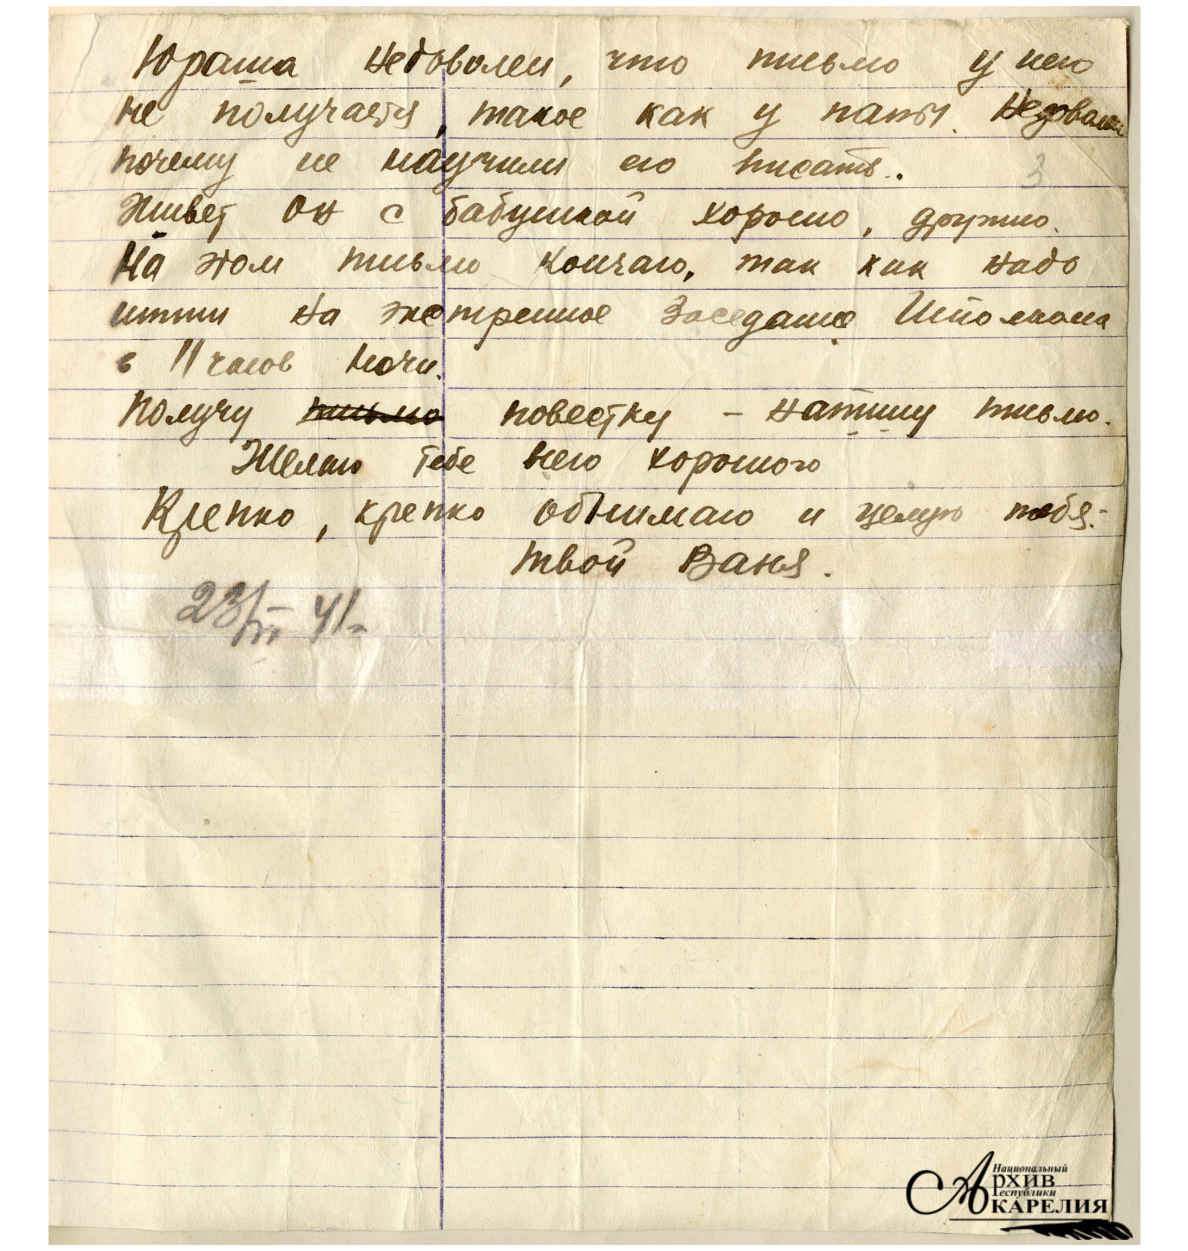 Юраша недоволен, что письмо у него
не получается, такое как у папы. Недоволен
почему не научили его писать.
3
Живет он с бабушкой хорошо, дружно.
На этом письмо кончаю, так как надо
итти на экстренное заседание Исполкома
в 11 часов ночи.
Получу письмо повестку – напишу письмо.
Желаю тебе всего хорошего
Крепко, крепко обнимаю и целую тебя.
твой Ваня.
23/VI 41
Национальный
Архив
Республики
КАРЕЛИЯ